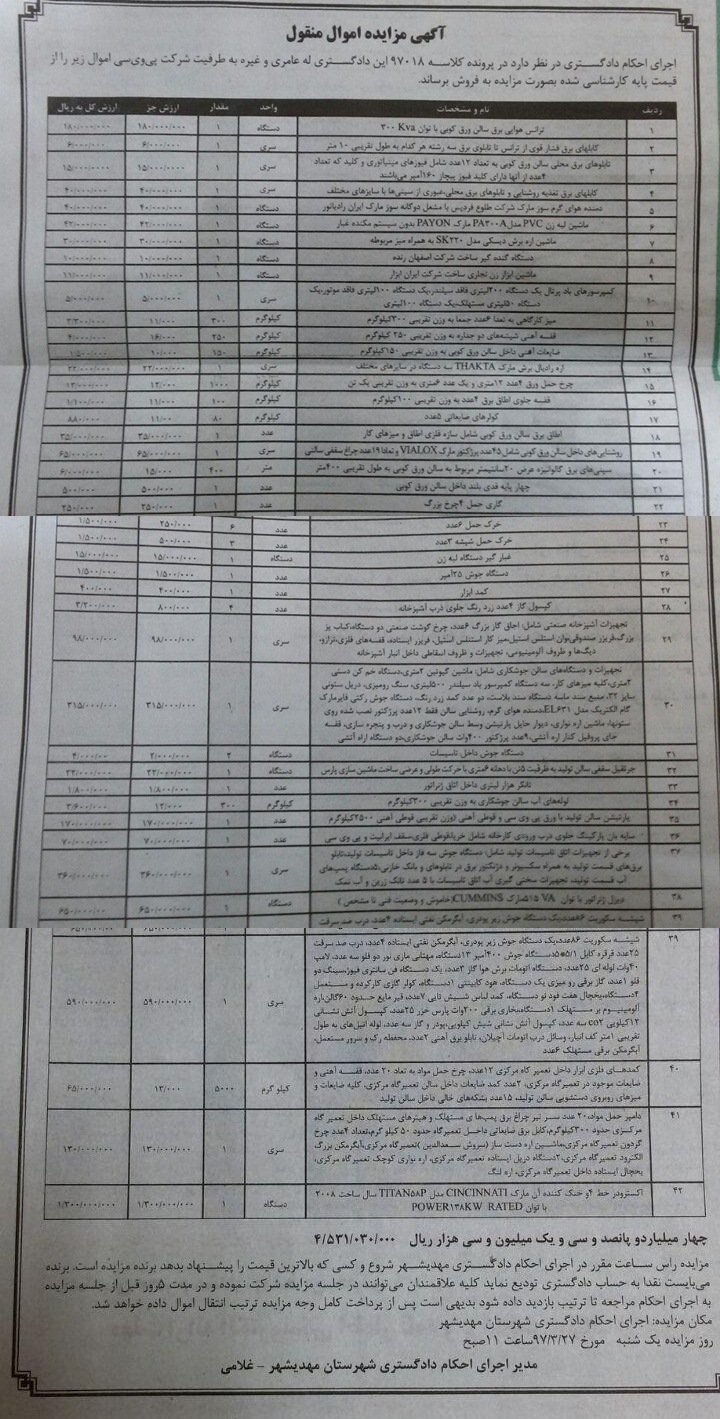 آگهی مزایده اموال منقول
اجرای احکام دادگستری در نظر دارد در پرونده کلاسه ۹۷۰۱۸ این دادگستری له عامری و غیره به طرفیت شرکت پی‌وی‌سی اموال زیر را از
قیمت پایه کارشناسی شده بصورت مزایده به فروش برساند.
ردیف نام و مشخصات واحد مقدار ارزش جز ارزش کل به ریال
۱ ترانس هوایی برق سالن ورق کوبی با توان ۳۰۰ Kva دستگاه ۱ ۱۸۰/۰۰۰/۰۰۰ ۱۸۰/۰۰۰/۰۰۰
۲ کابلهای برق فشار قوی از ترانس تا تابلوی برق سه رشته هر کدام به طول تقریبی ۱۰ متر سری ۱ ۶/۰۰۰/۰۰۰ ۶/۰۰۰/۰۰۰
۳ تابلوهای برق محلی سالن ورق کوبی به تعداد ۱۲عدد شامل فیوزهای مینیاتوری و کلید که تعداد
۴عدد از آنها دارای کلید فیوز پیچاز ۱۶۰آمپر می‌باشند سری ۱ ۱۵/۰۰۰/۰۰۰ ۱۵/۰۰۰/۰۰۰
۴ کابلهای برق تغذیه روشنایی و تابلوهای برق محلی،عبوری از سینی‌ها با سایزهای مختلف سری ۱ ۴۰/۰۰۰/۰۰۰ ۴۰/۰۰۰/۰۰۰
۵ دمنده هوای گرم سوز مارک شرکت طلوع فردیس با مشعل دوگانه سوز مارک ایران رادیاتور دستگاه ۱ ۴۰/۰۰۰/۰۰۰ ۴۰/۰۰۰/۰۰۰
۶ ماشین لبه زن PVC مدلPA۳۰۰A مارک PAYON بدون سیستم مکنده غبار دستگاه ۱ ۴۲/۰۰۰/۰۰۰ ۴۲/۰۰۰/۰۰۰
۷ ماشین اره برش دیسکی مدل SK۲۲۰ به همراه میز مربوطه دستگاه ۱ ۳۰/۰۰۰/۰۰۰ ۳۰/۰۰۰/۰۰۰
۸ دستگاه گنده گیر ساخت شرکت اصفهان رنده دستگاه ۱ ۱۰/۰۰۰/۰۰۰ ۱۰/۰۰۰/۰۰۰
۹ ماشین ابزار زن نجاری ساخت شرکت ایران ابزار دستگاه ۱ ۱۱/۰۰۰/۰۰۰ ۱۱/۰۰۰/۰۰۰
۱۰ کمپرسورهای باد پرتال یک دستگاه ۲۰۰لیتری فاقد سیلندر،یک دستگاه ۱۰۰لیتری فاقد موتور،یک
دستگاه ۵۰لیتری مستهلک،یک دستگاه ۱۰۰لیتری سری ۱ ۵/۰۰۰/۰۰۰ ۵/۰۰۰/۰۰۰
۱۱ میز کارگاهی به تعدا ۶عدد جمعا به وزن تقریبی ۳۰۰کیلوگرم کیلوگرم ۳۰۰ ۱۱/۰۰۰ ۳/۳۰۰/۰۰۰
۱۲ قفسه آهنی شیشه‌های دو جداره به وزن تقریبی ۲۵۰ کیلوگرم کیلوگرم ۲۵۰ ۱۶/۰۰۰ ۴/۰۰۰/۰۰۰
۱۳ ضایعات آهنی داخل سالن ورق کوبی به وزن تقریبی ۱۵۰کیلوگرم کیلوگرم ۱۵۰ ۱۰/۰۰۰ ۱/۵۰۰/۰۰۰
۱۴ اره رادیال برش مارک THAKTA سه دستگاه در سایزهای مختلف سری ۱ ۲۲/۰۰۰/۰۰۰ ۲۲/۰۰۰/۰۰۰
۱۵ چرخ حمل ورق ۴عدد ۱۲متری و یک عدد ۶متری به وزن تقریبی یک تن کیلوگرم ۱۰۰۰ ۱۲/۰۰۰ ۱۲/۰۰۰/۰۰۰
۱۶ قفسه جلوی اطاق برق ۴عدد به وزن تقریبی ۱۰۰کیلوگرم کیلوگرم ۱۰۰ ۱۱/۰۰۰ ۱/۱۰۰/۰۰۰
۱۷ کولرهای ضایعاتی ۵عدد کیلوگرم ۸۰ ۱۱/۰۰۰ ۸۸۰/۰۰۰
۱۸ اطاق برق سالن ورق کوبی شامل سازه فلزی اطاق و میزهای کار عدد ۱ ۳۵/۰۰۰/۰۰۰ ۳۵/۰۰۰/۰۰۰
۱۹ روشنایی‌های داخل سالن ورق کوبی شامل۴۵عدد پرژکتور مارک VIALOX و تعداد۱۹عدد چراغ سقفی سالنی سری ۱ ۶۵/۰۰۰/۰۰۰ ۶۵/۰۰۰/۰۰۰
۲۰ سینی‌های برق گالوانیزه عرض ۲۰سانتیمتر مربوط به سالن ورق کوبی به طول تقریبی ۴۰۰متر متر ۴۰۰ ۱۵/۰۰۰ ۶/۰۰۰/۰۰۰
۲۱ چهار پایه قدی بلند داخل سالن ورق کوبی عدد ۱ ۵۰۰/۰۰۰ ۵۰۰/۰۰۰
۲۲ گاری حمل ۴چرخ بزرگ عدد ۱ ۲۵۰/۰۰۰ ۲۵۰/۰۰۰
۲۳ خرک حمل ۶عدد عدد ۶ ۲۵۰/۰۰۰ ۱/۵۰۰/۰۰۰
۲۴ خرک حمل شیشه ۳عدد عدد ۳ ۵۰۰/۰۰۰ ۱/۵۰۰/۰۰۰
۲۵ غبار گیر دستگاه لبه زن دستگاه ۱ ۱۵/۰۰۰/۰۰۰ ۱۵/۰۰۰/۰۰۰
۲۶ دستگاه جوش ۲۵آمپر عدد ۱ ۱/۵۰۰/۰۰۰ ۱/۵۰۰/۰۰۰
۲۷ کمد ابزار عدد ۱ ۴۰۰/۰۰۰ ۴۰۰/۰۰۰
۲۸ کپسول گاز ۴عدد زرد رنگ جلوی درب آشپزخانه عدد ۴ ۸۰۰/۰۰۰ ۳/۲۰۰/۰۰۰
۲۹ تجهیزات آشپزخانه صنعتی شامل: اجاق گاز بزرگ ۶عدد، چرخ گوشت صنعتی دو دستگاه،کباب پز
بزرگ،فریزر صندوقی،وان استلس استیل،میز کار استنلس استیل، فریزر ایستاده، قفسه‌های فلزی،ترازو،
دیگ‌ها و ظروف آلومینیومی، تجهیزات و ظروف اسقاطی داخل انبار آشپزخانه سری ۱ ۹۸/۰۰۰/۰۰۰ ۹۸/۰۰۰/۰۰۰
۳۰ تجهیزات و دستگاه‌های سالن جوشکاری شامل: ماشین گیوتین ۲متری،دستگاه خم کن دستی
۲متری،کلیه میزهای کار، سه دستگاه کمپرسور باد سیلندر ۵۰۰لیتری، سنگ رومیزی، دریل ستونی
سایز ۳۲، منبع سند ماسه دستگاه سند بلاست، دو عدد کمد زرد رنگ، دستگاه جوش رکتی فایرمارک
گام الکتریک مدل EL۶۳۱،دمنده هوای گرم، روشنایی سالن فقط ۱۲عدد پرژکتور نصب شده روی
ستونها، ماشین اره نواری، دیوار حایل پارتیشن وسط سالن جوشکاری و درب و پنجره سازی، قفسه
جای پروفیل کنار اره آتشی،۹عدد پرژکتور ۴۰۰وات سالن جوشکاری،دو دستگاه اره آتشی سری ۱ ۳۱۵/۰۰۰/۰۰۰ ۳۱۵/۰۰۰/۰۰۰
۳۱ دستگاه جوش داخل تاسیسات دستگاه ۲ ۲/۰۰۰/۰۰۰ ۴/۰۰۰/۰۰
۳۲ جرثقیل سقفی سالن تولید به ظرفیت ۵تن با دهانه ۶متری با حرکت طولی و عرضی ساخت ماشین سازی پارس دستگاه ۱ ۲۲/۰۰۰/۰۰۰ ۲۲/۰۰۰/۰۰۰
۳۳ تانکر هزار لیتری داخل اتاق ژنراتور عدد ۱ ۱/۸۰۰/۰۰۰ ۱/۸۰۰/۰۰۰
۳۴ لوله‌های آب سالن جوشکاری به وزن تقریبی ۳۰۰کیلوگرم کیلوگرم ۳۰۰ ۱۲/۰۰۰ ۳/۶۰۰/۰۰۰
۳۵ پارتیشن سالن تولید با ورق پی وی سی و قوطی آهنی (وزن تقریبی قوطی آهنی ۲۵۰۰کیلوگرم عدد ۱ ۱۷۰/۰۰۰/۰۰۰ ۱۷۰/۰۰۰/۰۰۰
۳۶ سایه بان پارکینگ جلوی درب ورودی کارخانه شامل خرپا،قوطی فلزی،سقف ایرانیت و پی وی سی عدد ۱ ۷۰/۰۰۰/۰۰۰ ۷۰/۰۰۰/۰۰۰
۳۷ برخی از تجهیزات اتاق تاسیسات تولید شامل: دستگاه جوش سه فاز داخل تاسیسات تولید،تابلو
برق‌های قسمت تولید به همراه سکسیونر و دژنکتور برق در تابلوهای و بانک خازنی،۵دستگاه پمپ‌های
آب قسمت تولید، تجهیزات سختی گیری آب اتاق تاسیسات با ۵ عدد تانک رزین و آب نمک سری ۱ ۳۶۰/۰۰۰/۰۰۰ ۳۶۰/۰۰۰/۰۰۰
۳۸ دیزل ژنراتور با توان ۵۱۵ VAمارک CUMMINS(خاموش و وضعیت فنی نا مشخص ) دستگاه ۱ ۶۵۰/۰۰۰/۰۰۰ ۶۵۰/۰۰۰/۰۰۰
۳۹ شیشه سکوریت ۸۶عدد،یک دستگاه جوش زیر پودری، آبگرمکن نفتی ایستاده ۴عدد، درب ضد سرقت
۳۹ شیشه سکوریت ۸۶عدد،یک دستگاه جوش زیر پودری، آبگرمکن نفتی ایستاده ۴عدد، درب ضد سرقت
۲۵عدد قرقره کابل ۵/۱*۵،دستگاه جوش ۴۰۰آمپر ۱۳دستگاه مهتابی مازی نور دو قلو سه عدد، لامپ
۴۰وات لوله ای ۲۵عدد، دستگاه اتومات برش هوا گاز ۲عدد، یک دستگاه فن سانتری فیوز،سینگ دو
قلو ۱عدد، گاز برقی رو میزی یک دستگاه، هود کابینتی ۱دستگاه، کولر گازی کارکرده و مستعمل
۲دستگاه،یخچال هفت فود نو دستگاه، کمد لباس شیش تایی ۷عدد، قیر مایع حدود ۶۰گالن،اره
آلومینیوم بر مستهلک ۱دستگاه،بخاری برقی ۲۰۰وات پارس خزر ۲۵عدد، کپسول آتش نشانی
۱۲کیلویی co۲ سه عدد، کپسول آتش نشانی شیش کیلویی،پودر و گاز سه عدد، لوله اتیل‌های به طول
تقریبی ۱متر کف انبار، وسائل درب اتومات آچیلان، تابلو برق آهنی ۲عدد، محفظه رک و سرور مستعمل،
آبگرمکن برقی مستهلک ۶عدد سری ۱ ۵۹۰/۰۰۰/۰۰۰ ۵۹۰/۰۰۰/۰۰۰
۴۰ کمدهای فلزی ابزار داخل تعمیر گاه مرکزی ۱۲عدد، چرخ حمل مواد به تعاد ۲۰ عدد، قفسه آهنی و
ضایعات موجود در تعمیرگاه مرکزی، ۲عدد کمد ضایعات داخل سالن تعمیرگاه مرکزی، کلیه ضایعات و
میزهای روبروی دستشویی سالن تولید، ۱۵عدد بشکه‌های خالی داخل سالن تولید کیلو گرم ۵۰۰۰ ۱۳/۰۰۰ ۶۵/۰۰۰/۰۰۰
۴۱ دامپر حمل مواد،۲۰ عدد سر تیر چراغ برق پمپ‌ها ی مستهلک و هیترهای مستهلک داخل تعمیر گاه
مرکزی حدود ۳۰۰کیلوگرم،کابل برق ضایعاتی داخل تعمیرگاه حدود ۵۰ کیلو گرم،تعداد ۴عدد چرخ
گردون تعمیرگاه مرکزی،ماشین اره دست ساز (سروش سعدالدین )تعمیرگاه مرکزی،آبگرمکن بزرگ
الکترود تعمیرگاه مرکزی، ۲دستگاه دریل ایستاده تعمیرگاه مرکزی، اره نواری کوچک تعمیرگاه مرکزی،
یخچال ایستاده داخل تعمیرگاه مرکزی، اره لنگ سری ۱ ۱۳۰/۰۰۰/۰۰۰ ۱۳۰/۰۰۰/۰۰۰
۴۲ اکسترودر خط ۴و خنک کننده آن مارک CINCINNATI مدل TITAN۵۸P سال ساخت ۲۰۰۸
با توان POWER۱۳۸KW RATED دستگاه ۱ ۱/۳۰۰/۰۰۰/۰۰۰ ۱/۳۰۰/۰۰۰/۰۰۰
چهار میلیاردو پانصد و سی و یک میلیون و سی هزار ریال ۴/۵۳۱/۰۳۰/۰۰۰
مزایده راس ساعت مقرر در اجرای احکام دادگستری مهدیشهر شروع و کسی که بالاترین قیمت را پیشنهاد بدهد برنده مزایده است. برنده
می‌بایست نقدا به حساب دادگستری تودیع نماید کلیه علاقمندان می‌توانند در جلسه مزایده شرکت نموده و در مدت ۵روز قبل از جلسه مزایده
به اجرای احکام مراجعه تا ترتیب بازدید داده شود بدیهی است پس از پرداخت کامل وجه مزایده ترتیب انتقال اموال داده خواهد شد.
مکان مزایده: اجرای احکام دادگستری شهرستان مهدیشهر
روز مزایده یک شنبه مورخ ۹۷/۳/۲۷ساعت ۱۱صبح
مدیر اجرای احکام دادگستری شهرستان مهدیشهر - غلامی